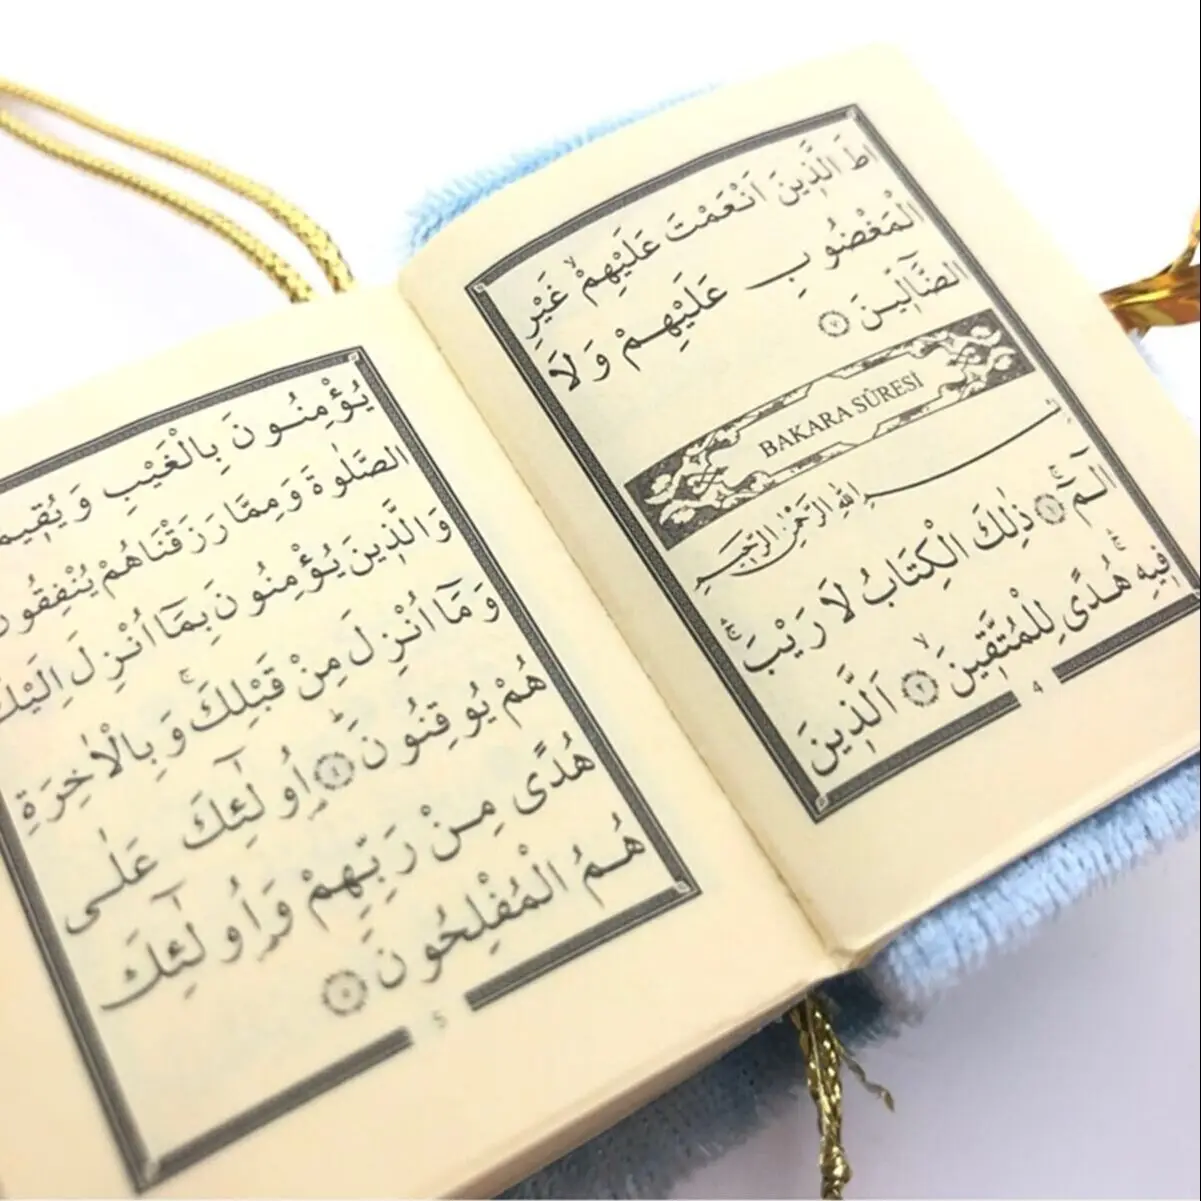 اطَ الَّذ۪ينَ اَنْعَمْتَ عَلَيْهِمْۙ غَيْرِ
الْمَغْضُوبِ عَلَيْهِمْ وَلَا
الضَّٓالّ۪ينَ ﴿٧﴾
BAKARA SÛRESİ
بِسْمِ اللّٰهِ الرَّحْمٰنِ الرَّح۪يمِ
الٓمٓۚ ﴿١﴾ ذٰلِكَ الْكِتَابُ لَا رَيْبَۚ
ف۪يهِۚ هُدًى لِلْمُتَّق۪ينَۙ ﴿٢﴾ اَلَّذ۪ينَ
4
يُؤْمِنُونَ بِالْغَيْبِ وَيُق۪يمُ
الصَّلٰوةَ وَمِمَّا رَزَقْنَاهُمْ يُنْفِقُونَ
وَالَّذ۪ينَ يُؤْمِنُونَ بِمَٓا اُنْزِلَ اِلَيْكَ
وَمَٓا اُنْزِلَ مِنْ قَبْلِكَۚ وَبِالْاٰخِرَةِ
هُمْ يُوقِنُونَۜ ﴿٤﴾ اُو۬لٰٓئِكَ عَلٰى
هُدًى مِنْ رَبِّهِمْ وَاُو۬لٰٓئِكَ
هُمُ الْمُفْلِحُونَ ﴿٥﴾
5